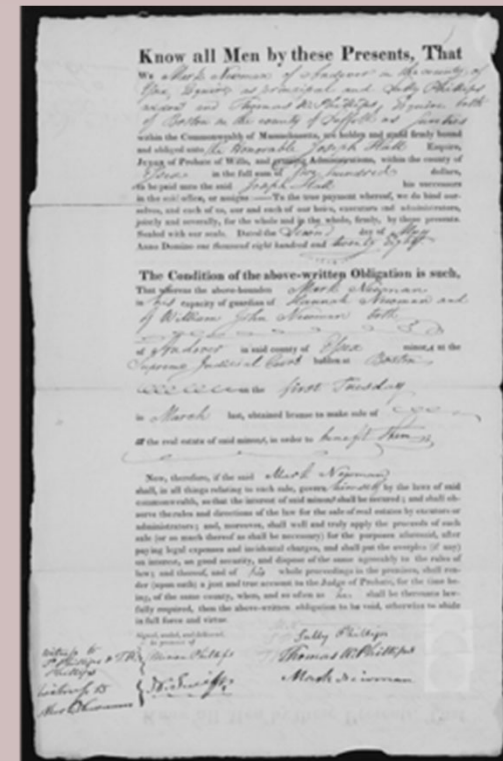 Know all Men by these Presents, That
We Mark Newman of Andover in the county of
Esquire, as principal and Sally Phillips
widow and Thomas W. Phillips, Esquire both
of Boston in the county of Suffolk as sureties
within the Commonwealth of Massachusetts, are holden and stand firmly bound
and obliged unto the Honorable Joseph Hall Esquire,
Judge of Probate of Wills, and granting Administrations, within the county of
Essex in the full sum of five hundred dollars,
to be paid unto the said Joseph Hall his successors
in the said office, or assigns —To the true payment whereof, we do bind our-
selves, and each of us, our and each of our heirs, executors and administrators,
jointly and severally, for the whole and in the whole, firmly, by these presents.
Sealed with our seals. Dated the second day of May
Anno Domino one thousand eight hundred and twenty eight
The Condition of the above-written Obligation is such,
That whereas the above-bounden Mark Newman
in his capacity of guardian of Hannah Newman and
of William John Newman both
of Andover in said county of Essex minors at the
Supreme Judicial Court holden at Boston
on the first Tuesday
in March last, obtained license to make sale of
the real estate of said minors, in order to benefit them
Now, therefore, if the said Mark Newman
shall, in all things relating to such sale, govern himself by the laws of said
commonwealth, so that the interest of said minors shall be secured; and shall ob-
serve the rules and directions of the law for the sale of real estates by executors or
administrators; and, moreover, shall well and truly apply the proceeds of such
sale (or so much thereof as shall be necessary) for the purposes aforesaid, after
paying legal expenses and incidental charges, and shall put the overplus (if any)
on interest, on good security, and dispose of the same agreeably to the rules of
law; and thereof, and of his whole proceedings in the premises, shall ren-
der (upon oath) a just and true account to the Judge of Probate, for the time be-
ing, of the same county, when, and so often as he shall be thereunto law-
fully required, then the above-written obligation to be void, otherwise to abide
in full force and virtue.
Signed, sealed, and delivered,
in presence of
witness to
Phillips & T.W.
Phillips
Phillips
witness to
Newman
Sally Phillips
Thomas W. Phillips
Mark Newman